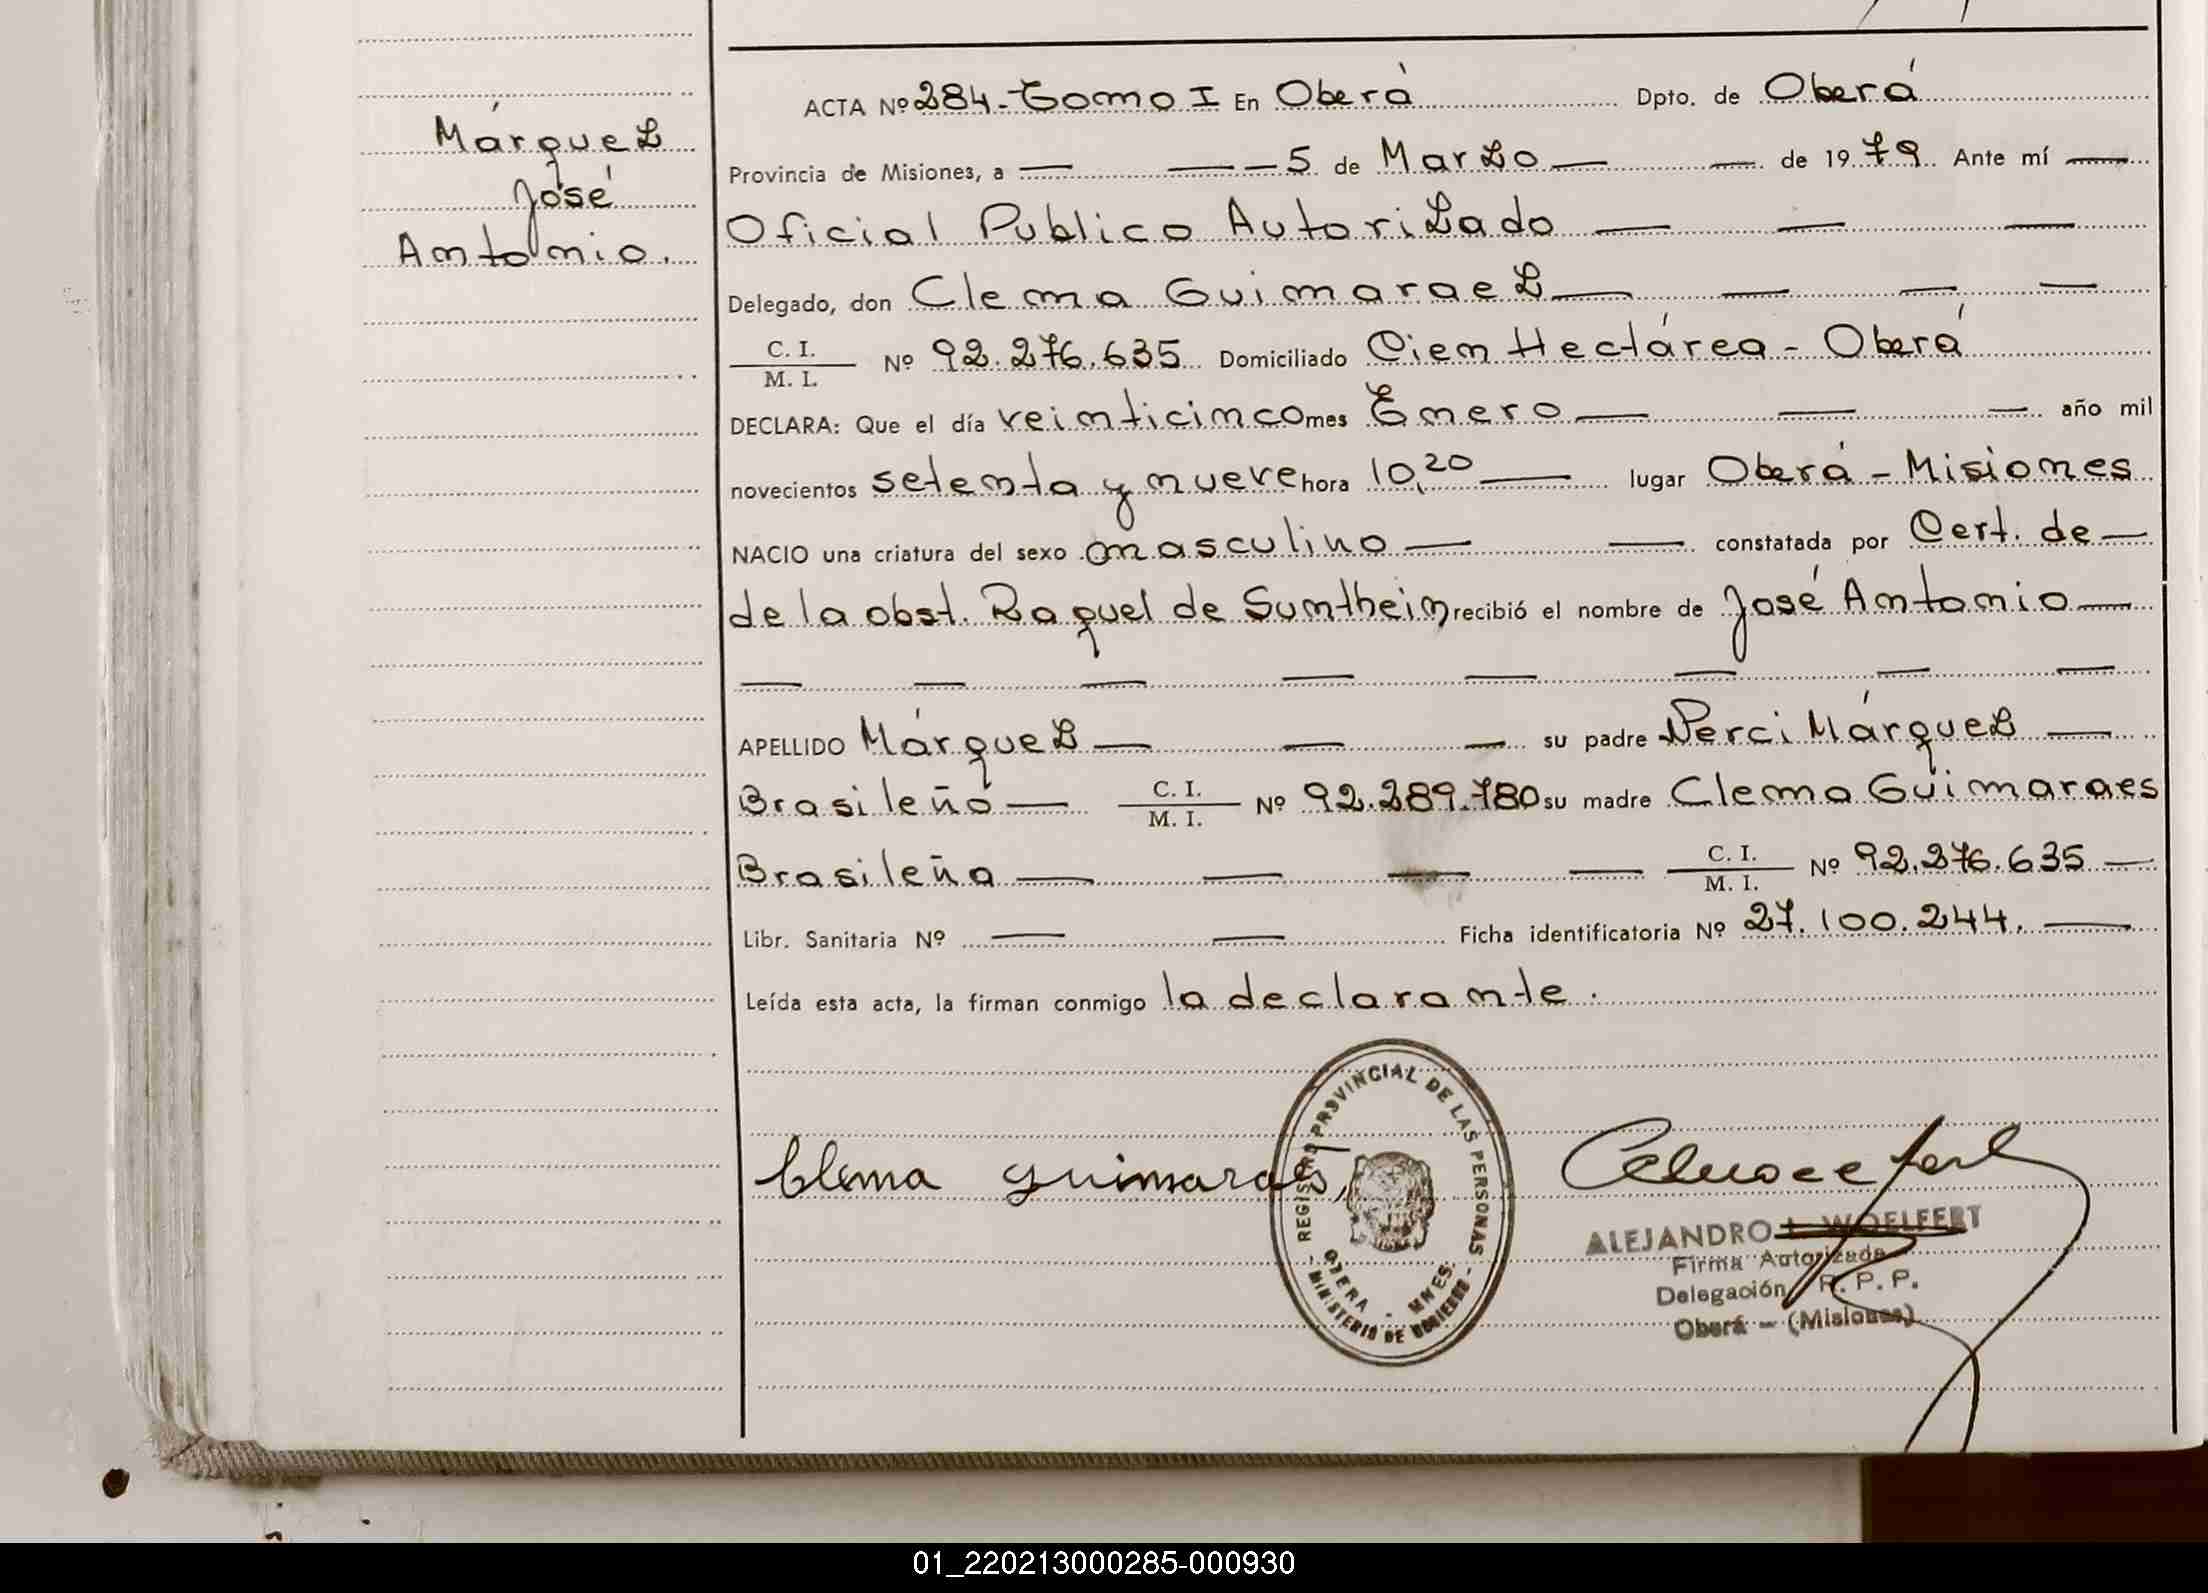 Márquez
José
Antonio.
ACTA Nº 284-Tomo I En Oberá Dpto. de Oberá
Provincia de Misiones, a — — — 5 de Marzo — — de 1979 Ante mí —
Oficial Publico Autorizado — — —
Delegado, don Clema Guimaraez — — — —
C. I.
M. I. Nº 92.276.635 Domiciliado Cien Hectárea - Oberá
DECLARA: Que el día veinticinco mes Enero — — — año mil
novecientos setenta y nueve hora 10,20 — lugar Oberá - Misiones
NACIO una criatura del sexo masculino — — constatada por Cert. de —
de la obst. Raquel de Sumthein recibió el nombre de José Antonio —
— — — — — — — —
APELLIDO Márquez — — — su padre Nerci Márquez —
Brasileño — C. I.
M. I. Nº 92.289.780 su madre Clema Guimaraes
Brasileña — — — — C. I.
M. I. Nº 92.276.635 —
Libr. Sanitaria Nº — — Ficha identificatoria Nº 27.100.244. —
Leída esta acta, la firman conmigo la declarante.
Clema guimaraes
REGISTRO PROVINCIAL DE LAS PERSONAS
OBERA - MNES.
- MINISTERIO DE GOBIERNO -
ALEJANDRO L. WOELFERT
Firma Autorizada
Delegación R. P. P.
Oberá - (Misiones)
01_220213000285-000930